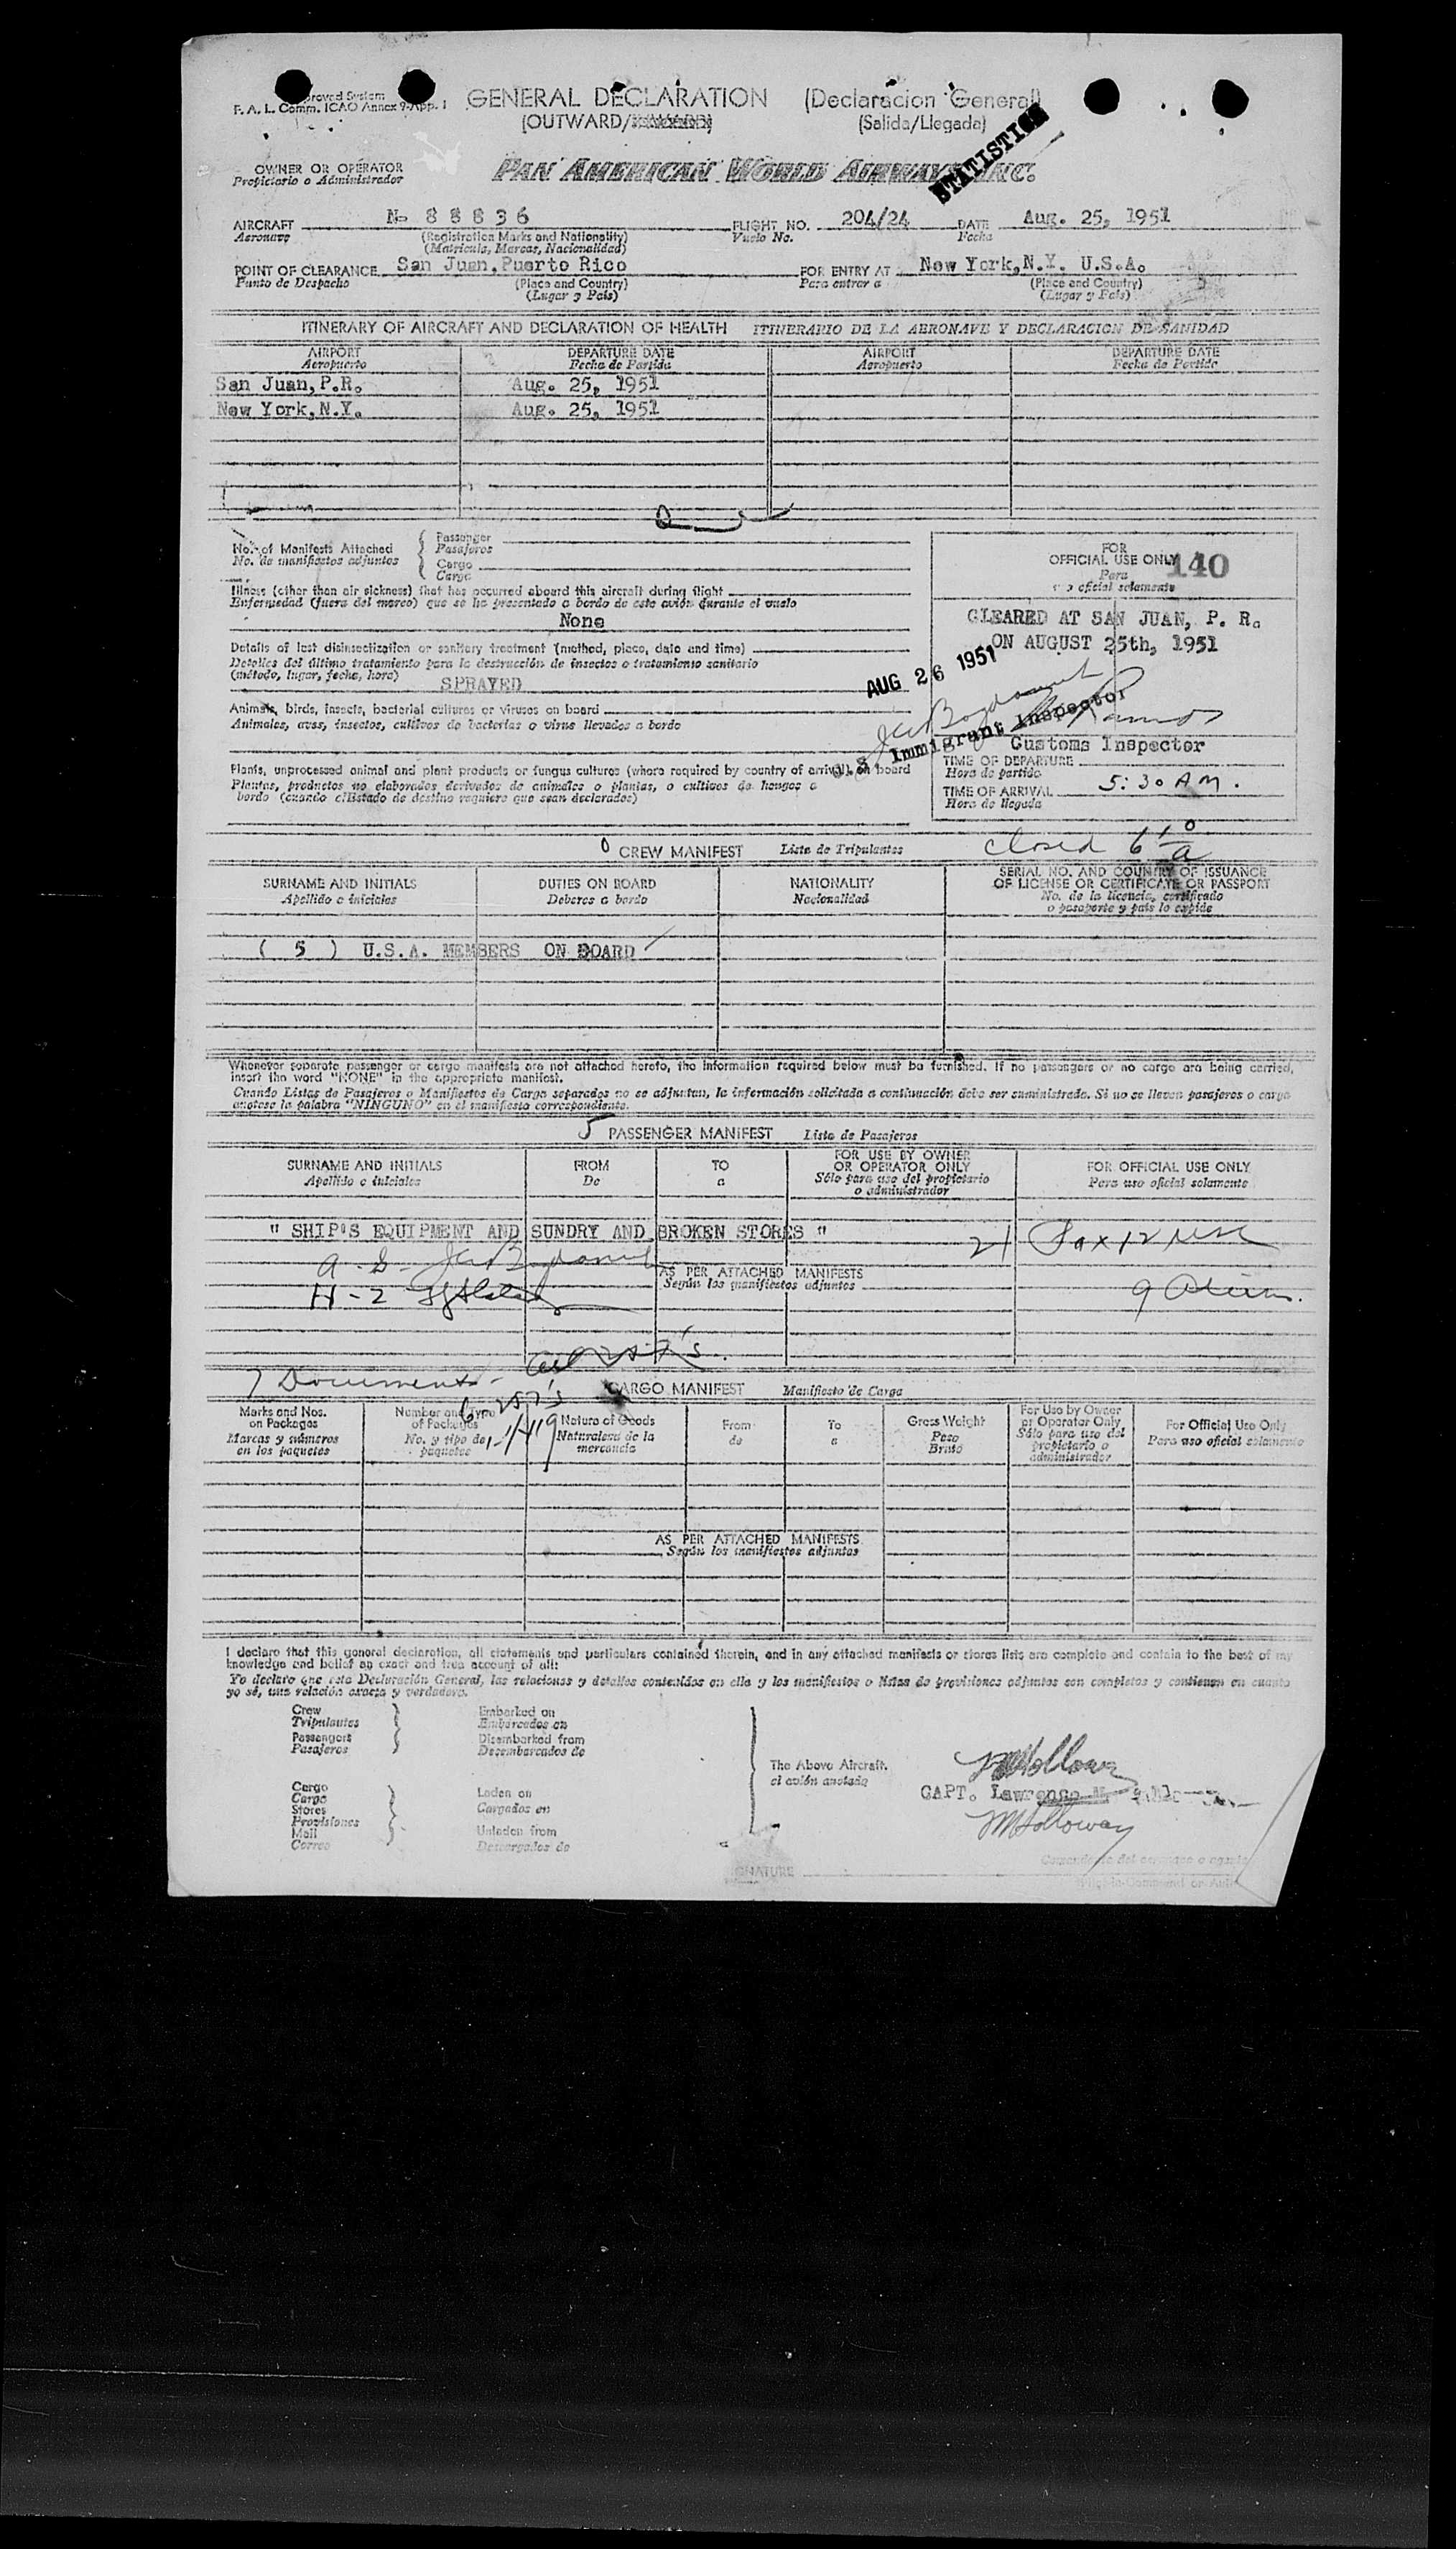 F. A. L. Comm. ICAO Annex 9-App. 1
GENERAL DECLARATION (Declaracion General)
(OUTWARD/ (Salida/Llegada)
STATISTICS
OWNER OR OPERATOR
Propiciario o Administrador
PAN AMERICAN WORLD AIRWAYS INC.
AIRCRAFT N- 88836 FLIGHT NO. 204/24 DATE Aug. 25, 1951
Aeronave (Registration Marks and Nationality) Vuelo No. Fecha
(Matricula, Marcas, Nacionalidad)
POINT OF CLEARANCE San Juan, Puerto Rico FOR ENTRY AT New York, N.Y. U.S.A.
Punto de Despacho (Place and Country) Para entrar a (Place and Country)
(Lugar y Pais) (Lugar y Pais)
ITINERARY OF AIRCRAFT AND DECLARATION OF HEALTH ITINERARIO DE LA AERONAVE Y DECLARACION DE SANIDAD
AIRPORT DEPARTURE DATE AIRPORT DEPARTURE DATE
Aeropuerto Fecha de Partida Aeropuerto Fecha de Partida
San Juan, P.R. Aug. 25, 1951
New York, N.Y. Aug. 25, 1951
No. of Manifests Attached
No. de manifiestos adjuntos
Passenger
Pasajeros
Cargo
Cargo
Illness (other than air sickness) that has occurred aboard this aircraft during flight
Enfermedad (fuera del mareo) que se ha presentado a bordo de este avión durante el vuelo
None
Details of last disinsectization or sanitary treatment (method, place, date and time)
Detalles del último tratamiento para la destrucción de insectos o tratamiento sanitario
(método, lugar, fecha, hora) SPRAYED
Animals, birds, insects, bacterial cultures or viruses on board
Animales, aves, insectos, cultivos de bacterias o virus llevados a bordo
Plants, unprocessed animal and plant products or fungus cultures (where required by country of arrival) on board
Plantas, productos no elaborados derivados de animales o plantas, o cultivos de hongos a
bordo (cuando el Estado de destino requiere que sean declarados)
FOR
OFFICIAL USE ONLY 140
Para
uso oficial solamente
CLEARED AT SAN JUAN, P. R.
ON AUGUST 25th, 1951
AUG 26 1951
U.S. Immigrant Inspector
Customs Inspector
TIME OF DEPARTURE
Hora de partida
TIME OF ARRIVAL 5:30 AM.
Hora de llegada
closed 6 10 a
0 CREW MANIFEST Lista de Tripulantes
SURNAME AND INITIALS DUTIES ON BOARD NATIONALITY SERIAL NO. AND COUNTRY OF ISSUANCE
Apellido e iniciales Deberes a bordo Nacionalidad OF LICENSE OR CERTIFICATE OR PASSPORT
No. de la licencia, certificado
o pasaporte y pais lo expide
( 5 ) U.S.A. MEMBERS ON BOARD
Whenever separate passenger or cargo manifests are not attached hereto, the information required below must be furnished. If no passengers or no cargo are being carried,
insert the word "NONE" in the appropriate manifest.
Cuando Listas de Pasajeros o Manifiestos de Carga separados no se adjuntan, la información solicitada a continuación debe ser suministrada. Si no se llevan pasajeros o carga
anotese la palabra "NINGUNO" en el manifiesto correspondiente.
5 PASSENGER MANIFEST Lista de Pasajeros
SURNAME AND INITIALS FROM TO FOR USE BY OWNER FOR OFFICIAL USE ONLY
Apellido e iniciales De a OR OPERATOR ONLY Para uso oficial solamente
Sólo para uso del propietario
o administrador
" SHIP'S EQUIPMENT AND SUNDRY AND BROKEN STORES "
AS PER ATTACHED MANIFESTS
Según los manifiestos adjuntos
9 Aliens.
7 Documents -
6 257's
CARGO MANIFEST Manifiesto de Carga
Marks and Nos. Number and Type Nature of Goods From To Gross Weight For Use by Owner For Official Use Only
on Packages of Packages Naturaleza de la de a Peso or Operator Only Para uso oficial solamente
Marcas y números No. y tipo de mercancia Bruto Sólo para uso del
en los paquetes paquetes propietario o
administrador
AS PER ATTACHED MANIFESTS
Según los manifiestos adjuntos
I declare that this general declaration, all statements and particulars contained therein, and in any attached manifests or stores lists are complete and contain to the best of my
knowledge and belief an exact and true account of all:
Yo declaro que esta Declaración General, las relaciones y detalles contenidos en ella y los manifiestos o listas de provisiones adjuntos son completos y contienen en cuanto
yo sé, una relación exacta y verdadera.
Crew Embarked on
Tripulantes Embarcados en
Passengers Disembarked from
Pasajeros Desembarcados de
The Above Aircraft.
el avión anotado
Cargo
Cargo Laden on
Stores Cargados en
Provisiones
Mail Unladen from
Correo Descargados de
CAPT. Lawrence M.
M Holloway
SIGNATURE